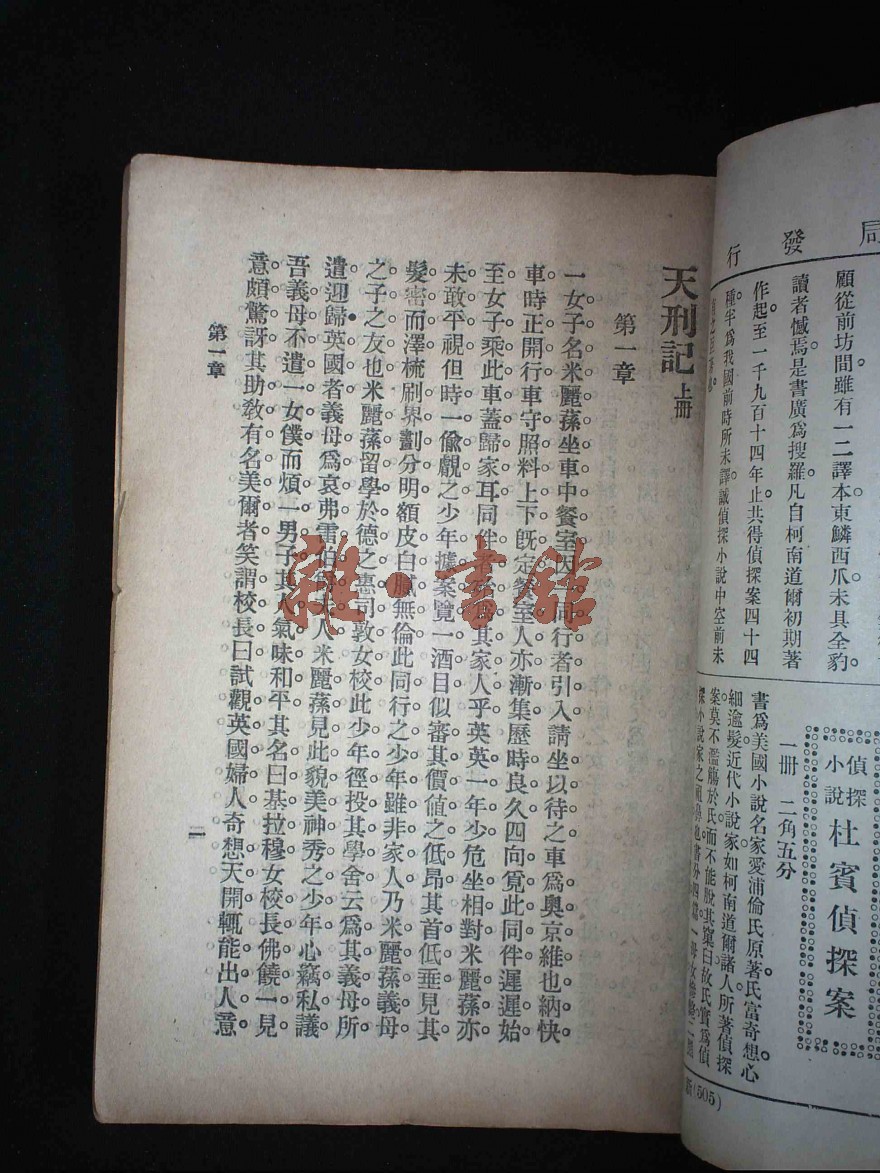 局發行
顧從前坊間雖有一二譯本東鱗西爪未具全豹
讀者憾焉是書廣爲搜羅凡自柯南道爾初期著
作起至一千九百十四年止共得偵探案四十四
種牢爲我國前時所未譯誠偵探小說中空前未
偵探小說 杜賓偵探案
一冊 二角五分
書爲美國小說名家愛浦倫氏原著氏富奇想心
細逾髮近代小說家如柯南道爾諸人所著偵探
案莫不濫觴於氏而不能脫其窠臼故氏實爲偵
探小說家之
(505)
天刑記 上冊
第一章
一女子名米麗蓀坐車中餐室因一同行者引入請坐以待之車爲奧京維也納快
車時正開行車守照料上下旣定餐室人亦漸集歷時良久四向覓此同伴遲遲始
至女子乘此車蓋歸家耳同伴者殆爲其家人乎英英一年少危坐相對米麗蓀亦
未敢平視但時一偸覷之少年據案覽一酒目似審其價值之低昂其首低垂見其
髮密而澤梳刷界劃分明額皮白膩無倫此同行之少年雖非家人乃米麗蓀義母
之子之友也米麗蓀留學於德之惠司敦女校此少年徑投其學舍云爲其義母所
遣迎歸英國者義母爲哀弗雷伯爵夫人米麗蓀見此貌美神秀之少年心竊私議
吾義母不遣一女僕而煩一男子其人氣味和平其名曰基拉穆女校長佛饒一見
意頗驚訝其助敎有名美爾者笑謂校長曰試觀英國婦人奇想天開輒能出人意
第一章
一
雜·書館